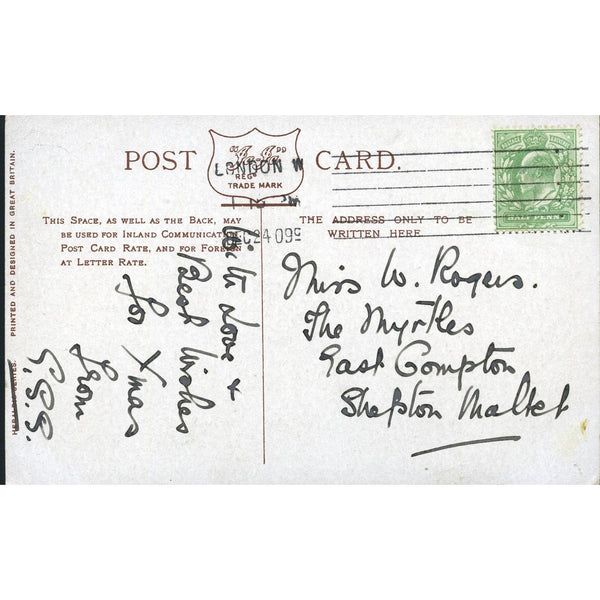 POST CARD.
REGD
TRADE MARK
LONDON W
DEC 24 09
THIS SPACE, AS WELL AS THE BACK, MAY
BE USED FOR INLAND COMMUNICATION
POST CARD RATE, AND FOR FOREIGN
AT LETTER RATE.
THE ADDRESS ONLY TO BE
WRITTEN HERE
HALF PENNY
PRINTED AND DESIGNED IN GREAT BRITAIN.
HERALDIC SERIES.
With Love &
Best Wishes
for Xmas
from
Miss W. Rogers.
The Myrtles
East Compton
Shepton Mallet